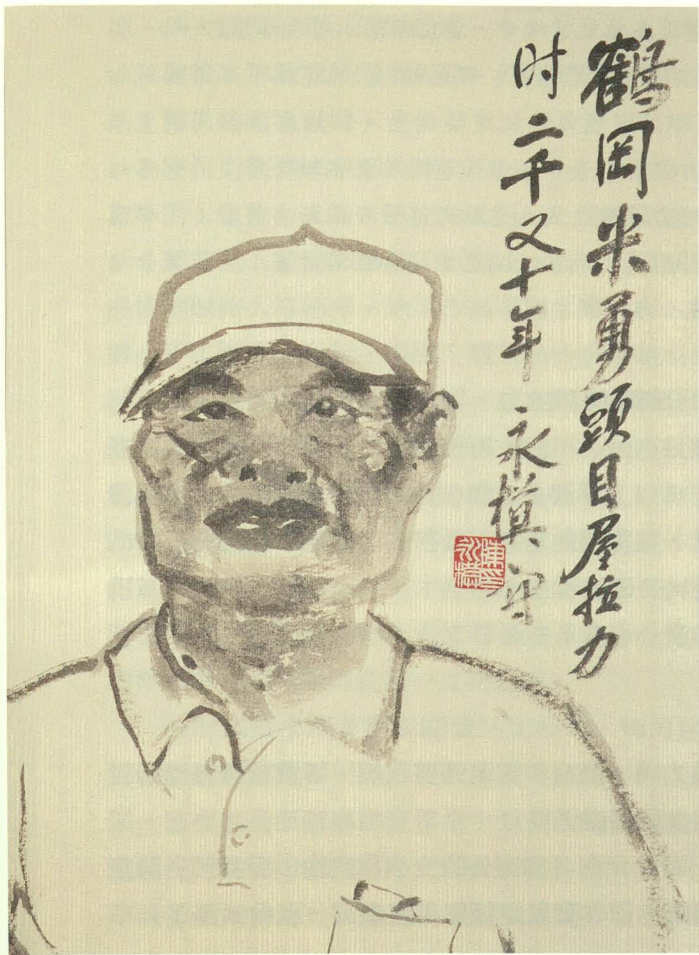 鶴岡米勇頭目屋拉力
时二千又十年 永模
陳印永模